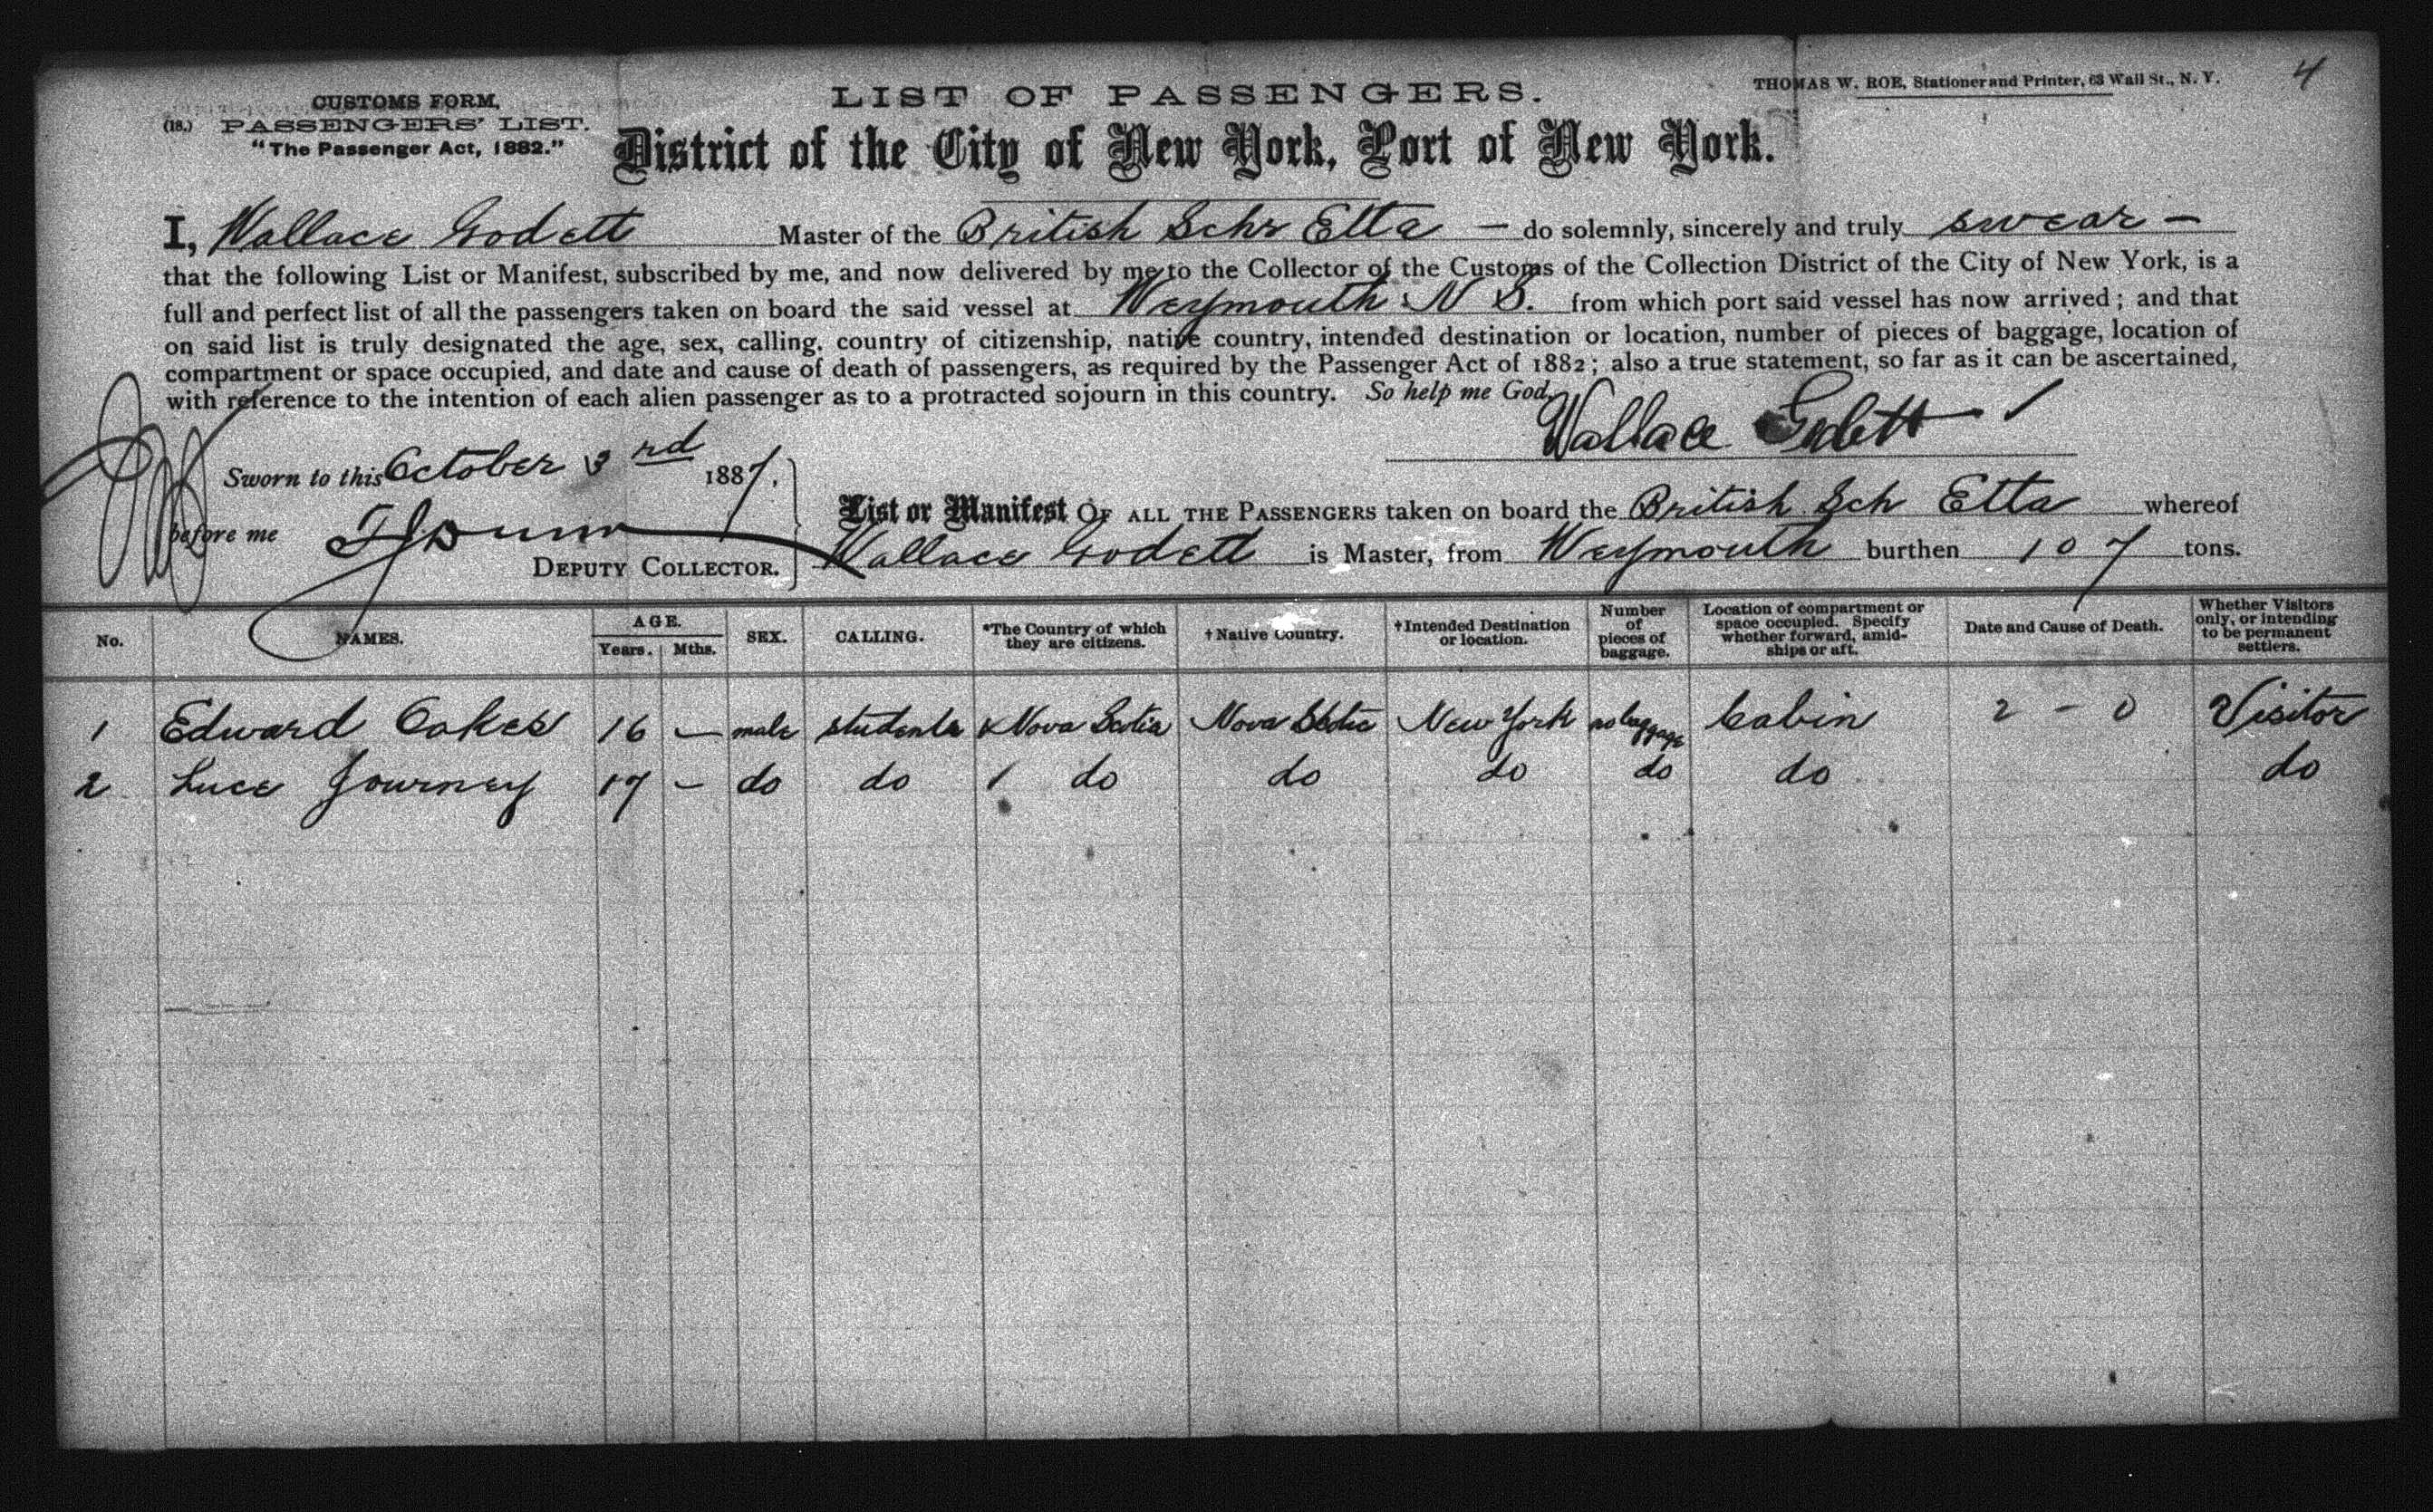 CUSTOMS FORM.
(18.) PASSENGERS' LIST.
"The Passenger Act, 1882."
LIST OF PASSENGERS.
THOMAS W. ROE, Stationer and Printer, 63 Wall St., N. Y.
4
District of the City of New York, Port of New York.
I, Wallace Godett Master of the British Schr Etta — do solemnly, sincerely and truly swear —
that the following List or Manifest, subscribed by me, and now delivered by me to the Collector of the Customs of the Collection District of the City of New York, is a
full and perfect list of all the passengers taken on board the said vessel at Weymouth N S. from which port said vessel has now arrived; and that
on said list is truly designated the age, sex, calling, country of citizenship, native country, intended destination or location, number of pieces of baggage, location of
compartment or space occupied, and date and cause of death of passengers, as required by the Passenger Act of 1882; also a true statement, so far as it can be ascertained,
with reference to the intention of each alien passenger as to a protracted sojourn in this country. So help me God.
Wallace Godett
Sworn to this October 3rd 1887,
before me
DEPUTY COLLECTOR.
List or Manifest OF ALL THE PASSENGERS taken on board the British Sch Etta whereof
Wallace Godett is Master, from Weymouth burthen 107 tons.
No. NAMES. AGE. Years. Mths. SEX. CALLING. *The Country of which they are citizens. †Native Country. †Intended Destination or location. Number of pieces of baggage. Location of compartment or space occupied. Specify whether forward, amidships or aft. Date and Cause of Death. Whether Visitors only, or intending to be permanent settlers.
1 Edward Oakes 16 — male students Nova Scotia Nova Scotia New York no baggage Cabin 2 - 0 Visitor
2 Luce Journey 17 - do do do do do do do do